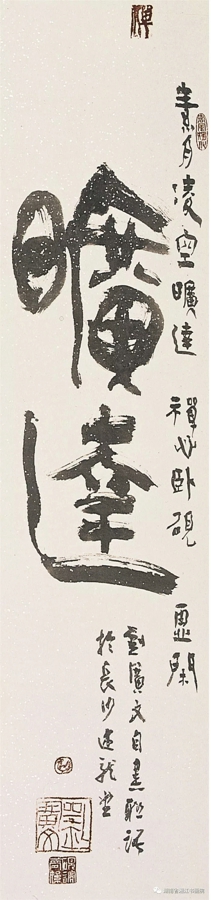 禪
素月凌空曠達 禪心卧硯靈閑
曠達
劉廣文自書聯語
於長沙
劉廣文